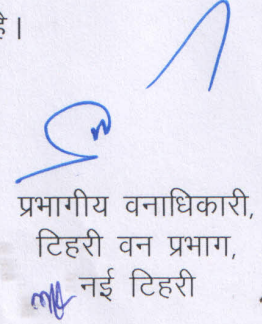 है।
प्रभागीय वनाधिकारी,
टिहरी वन प्रभाग,
नई टिहरी